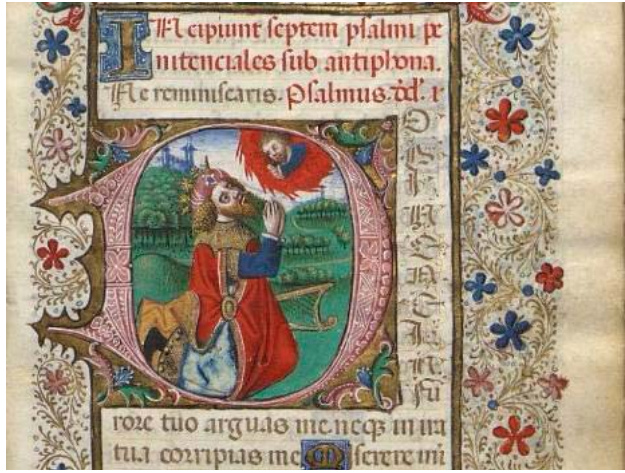 Incipiunt septem psalmi pe
nitenciales sub antiphona.
Ne reminiscaris. Psalmus. dd'. i
D
O
M
I
N
E
N
E
I
N
fu
rore tuo arguas me neqꝫ in ira
tua corripias me Miserere mi